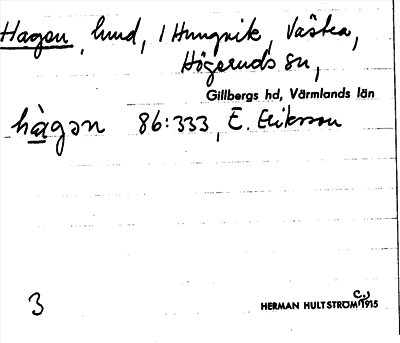 Hagen, lund, i Hungvik, Västra,
Högeruds sn,
Gillbergs hd, Värmlands län
hàgən 86:333, E. Eriksson
3
c.)
HERMAN HULTSTRÖM 1915